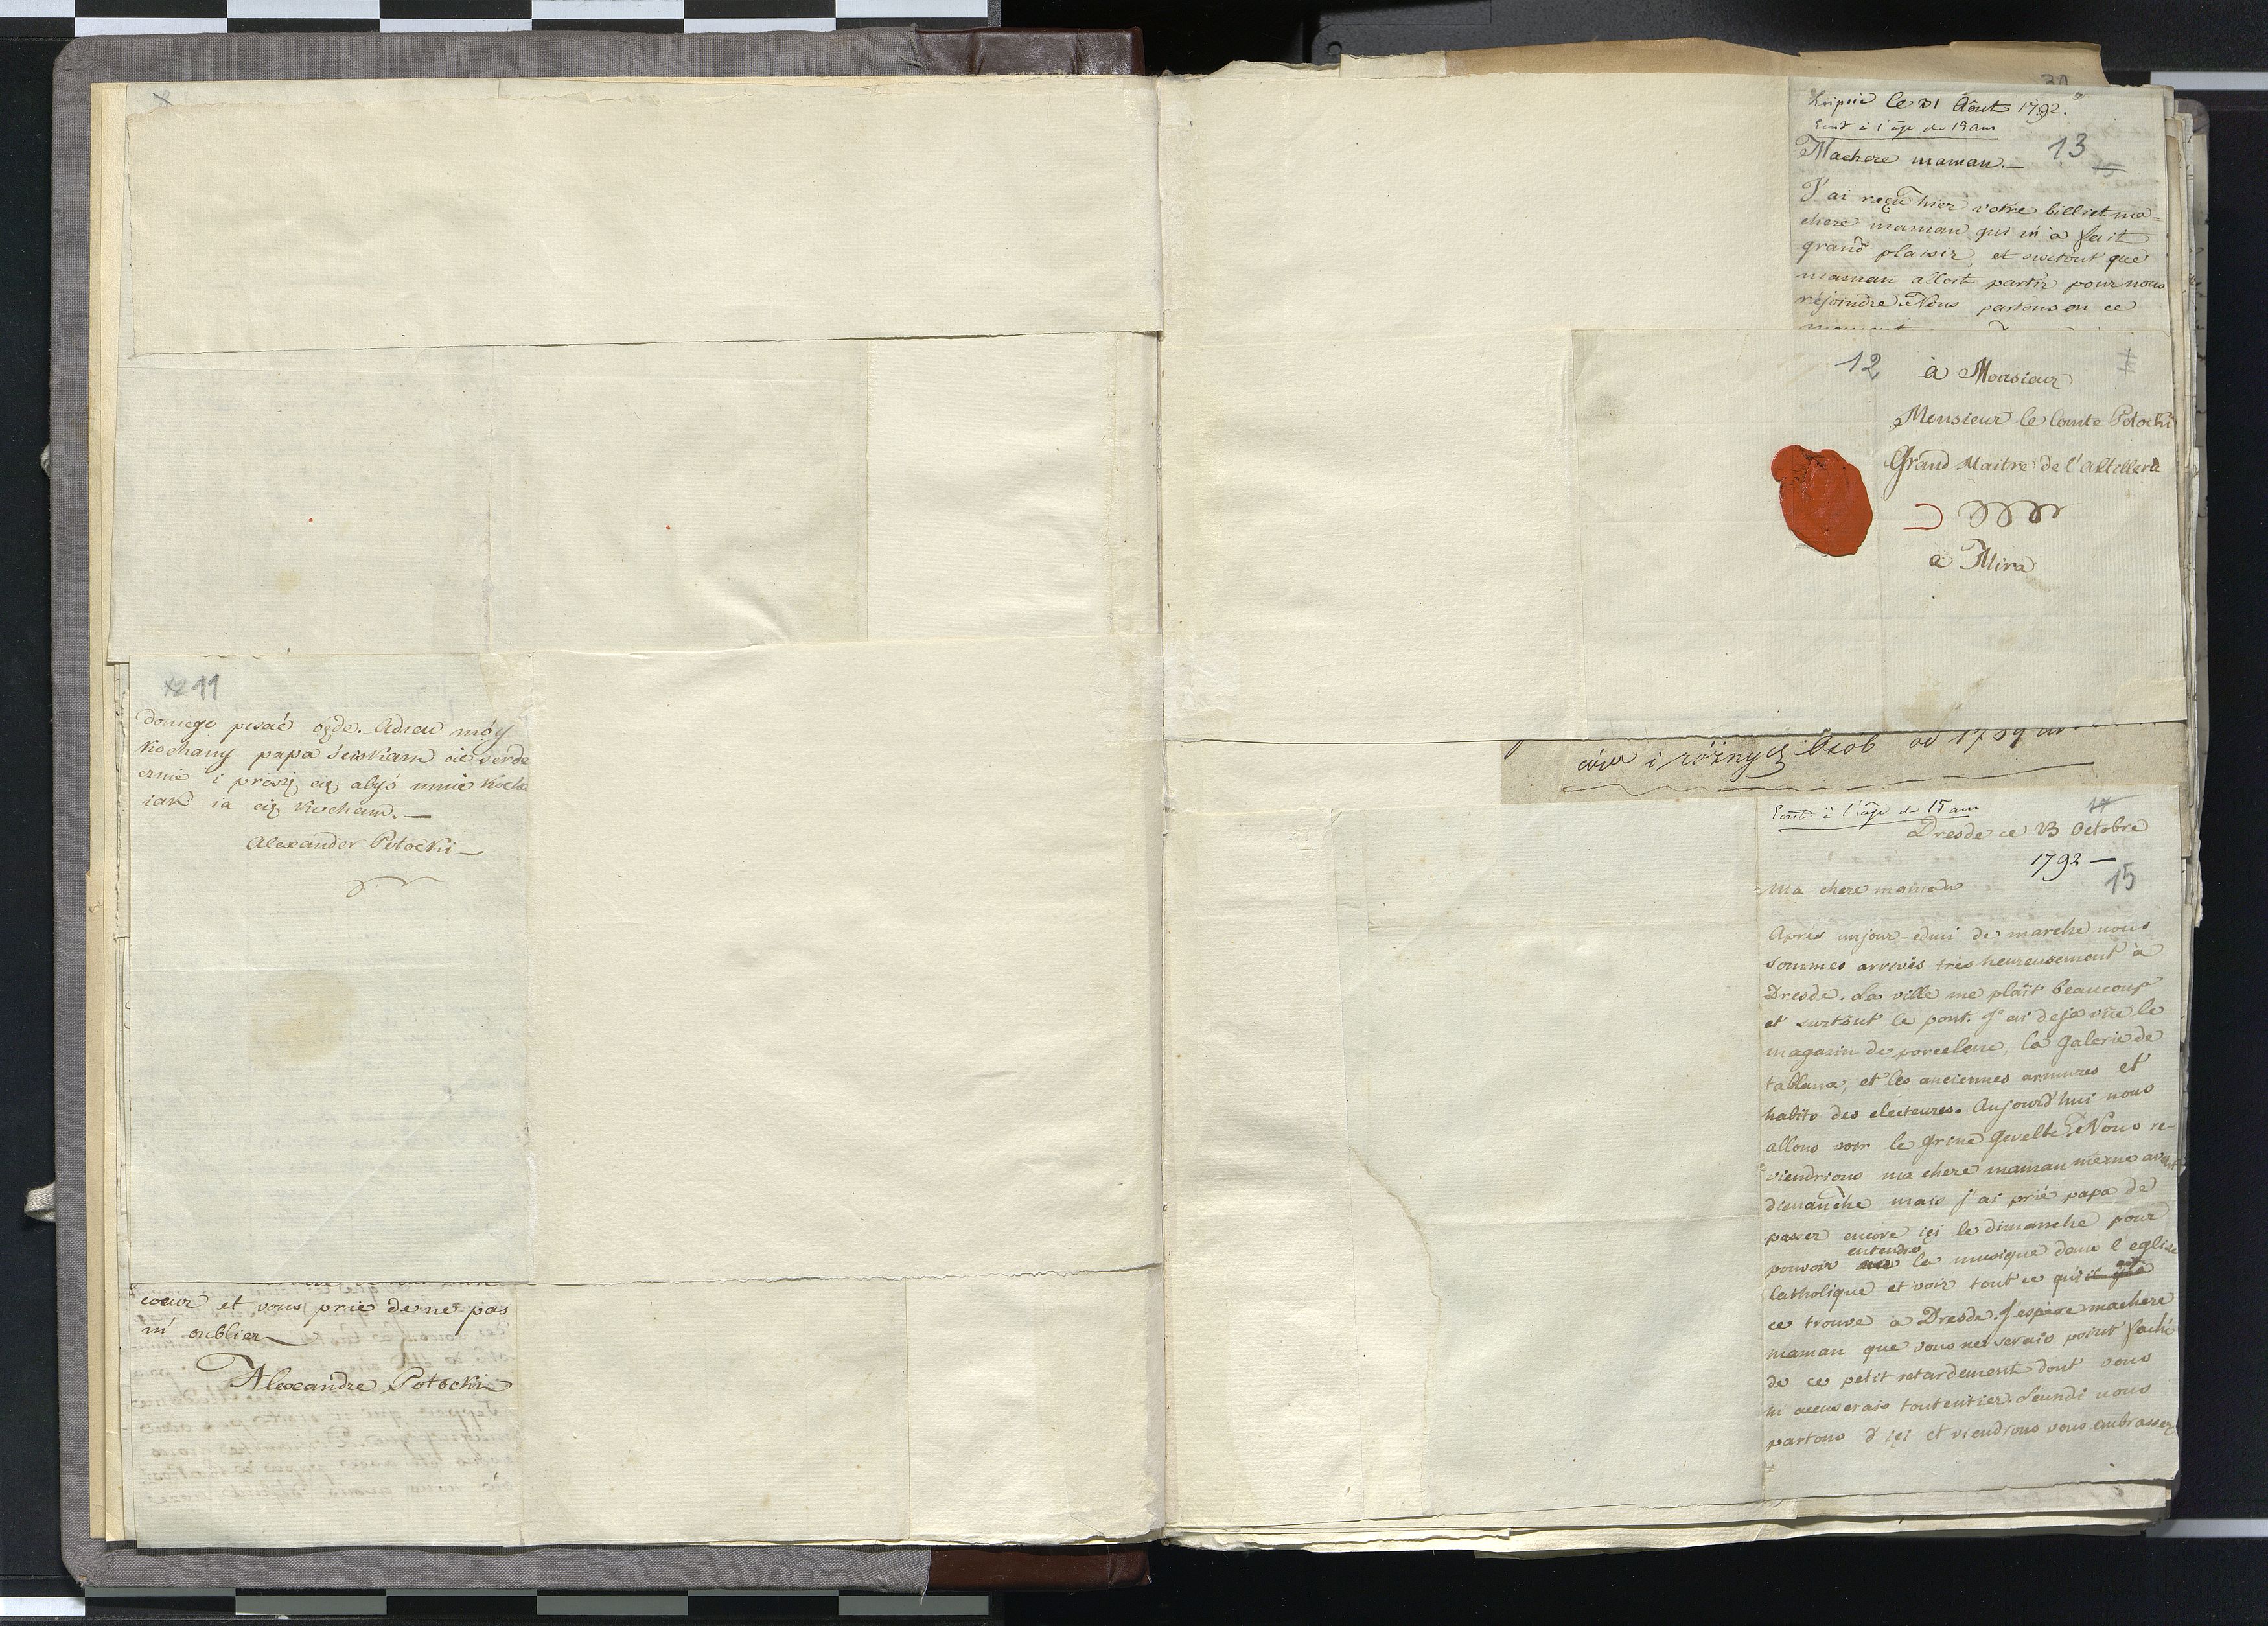 11
doniego pisać będe. Adieu móy
kochany papa sciskam cie serde
cznie i proszę cię abyś mnie kocha
iak ia cię kocham.—
Alexander Potocki—
coeur et vous prie de ne pas
m'oublier
Alexandre Potocki
30
Leipsic le 31 Août 1792.
Ecrit à l'âge de 15 ans
13
15
Machere maman.—
J'ai reçu hier votre billiet ma=
chere maman qui m'a fait
grand plaisir, et surtout que
maman alloit partir pour nous
rejoindre. Nous partons en ce
moment
12
à Monsieur
Monsieur le Comte Potocki
Grand Maitre de l'Artillerie
à Mira
i różnych Osób od 1789
Ecrit à l'âge de 15 ans
Dresde ce 23 Octobre
1792—
15
Ma chere maman
Après unjour-edmi de marche nous
sommes arrivés très heureusement à
Dresde. La ville me plaît beaucoup
et surtout le pont. J'ai deja vue le
magasin de porcelene, la Galerie de
tablaux, et les anciennes armures et
habits des electeures. Aujourd'hui nous
allons voir le Grine Gevelbe. Nous re-
viendrions ma chere maman meme avant
dimanche mais j'ai prié papa de
passer encore içi le dimanche pour
pouvoir entendre la musique dans l'eglise
Catholique et voir tout ce qui
ce trouve à Dresde. J'espère machere
maman que vous ne serais point faché
de ce petit retardement dont vous
m'accuserais toutentier. Leundi nous
partons d'içi et viendrons vous embrasser